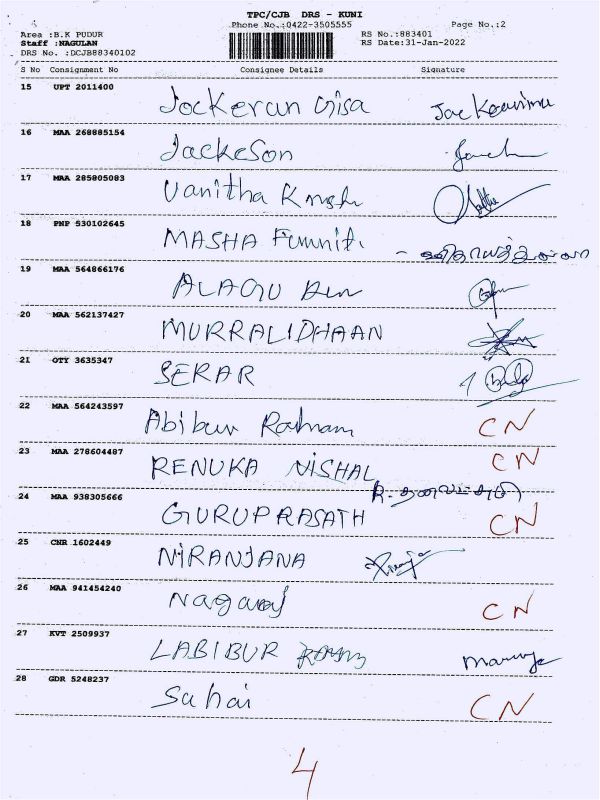 TPC/CJB DRS - KUNI
Phone No.:0422-3505555 Page No.:2
Area :B.K PUDUR RS No.:883401
Staff :NAGULAN RS Date:31-Jan-2022
DRS No. :DCJB88340102
S No Consignment No Consignee Details Signature
15 UPT 2011400 Jockerun
16 MAA 268885154 JackeSon
17 MAA 285805083 Vanitha
18 PNP 530102645 MASHA
19 MAA 564866176 ALAGU
20 MAA 562137427 MURRALIDHAAN
21 OTY 3635347 SEKAR
22 MAA 564243597 Abibur CN
23 MAA 278604487 RENUKA NISHAL CN
24 MAA 938305666 GURUPRASATH CN
25 CNR 1602449 NIRANJANA
26 MAA 941454240 Nagaraj CN
27 KVT 2509937 LABIBUR
28 GDR 5248237 Suhai CN
4